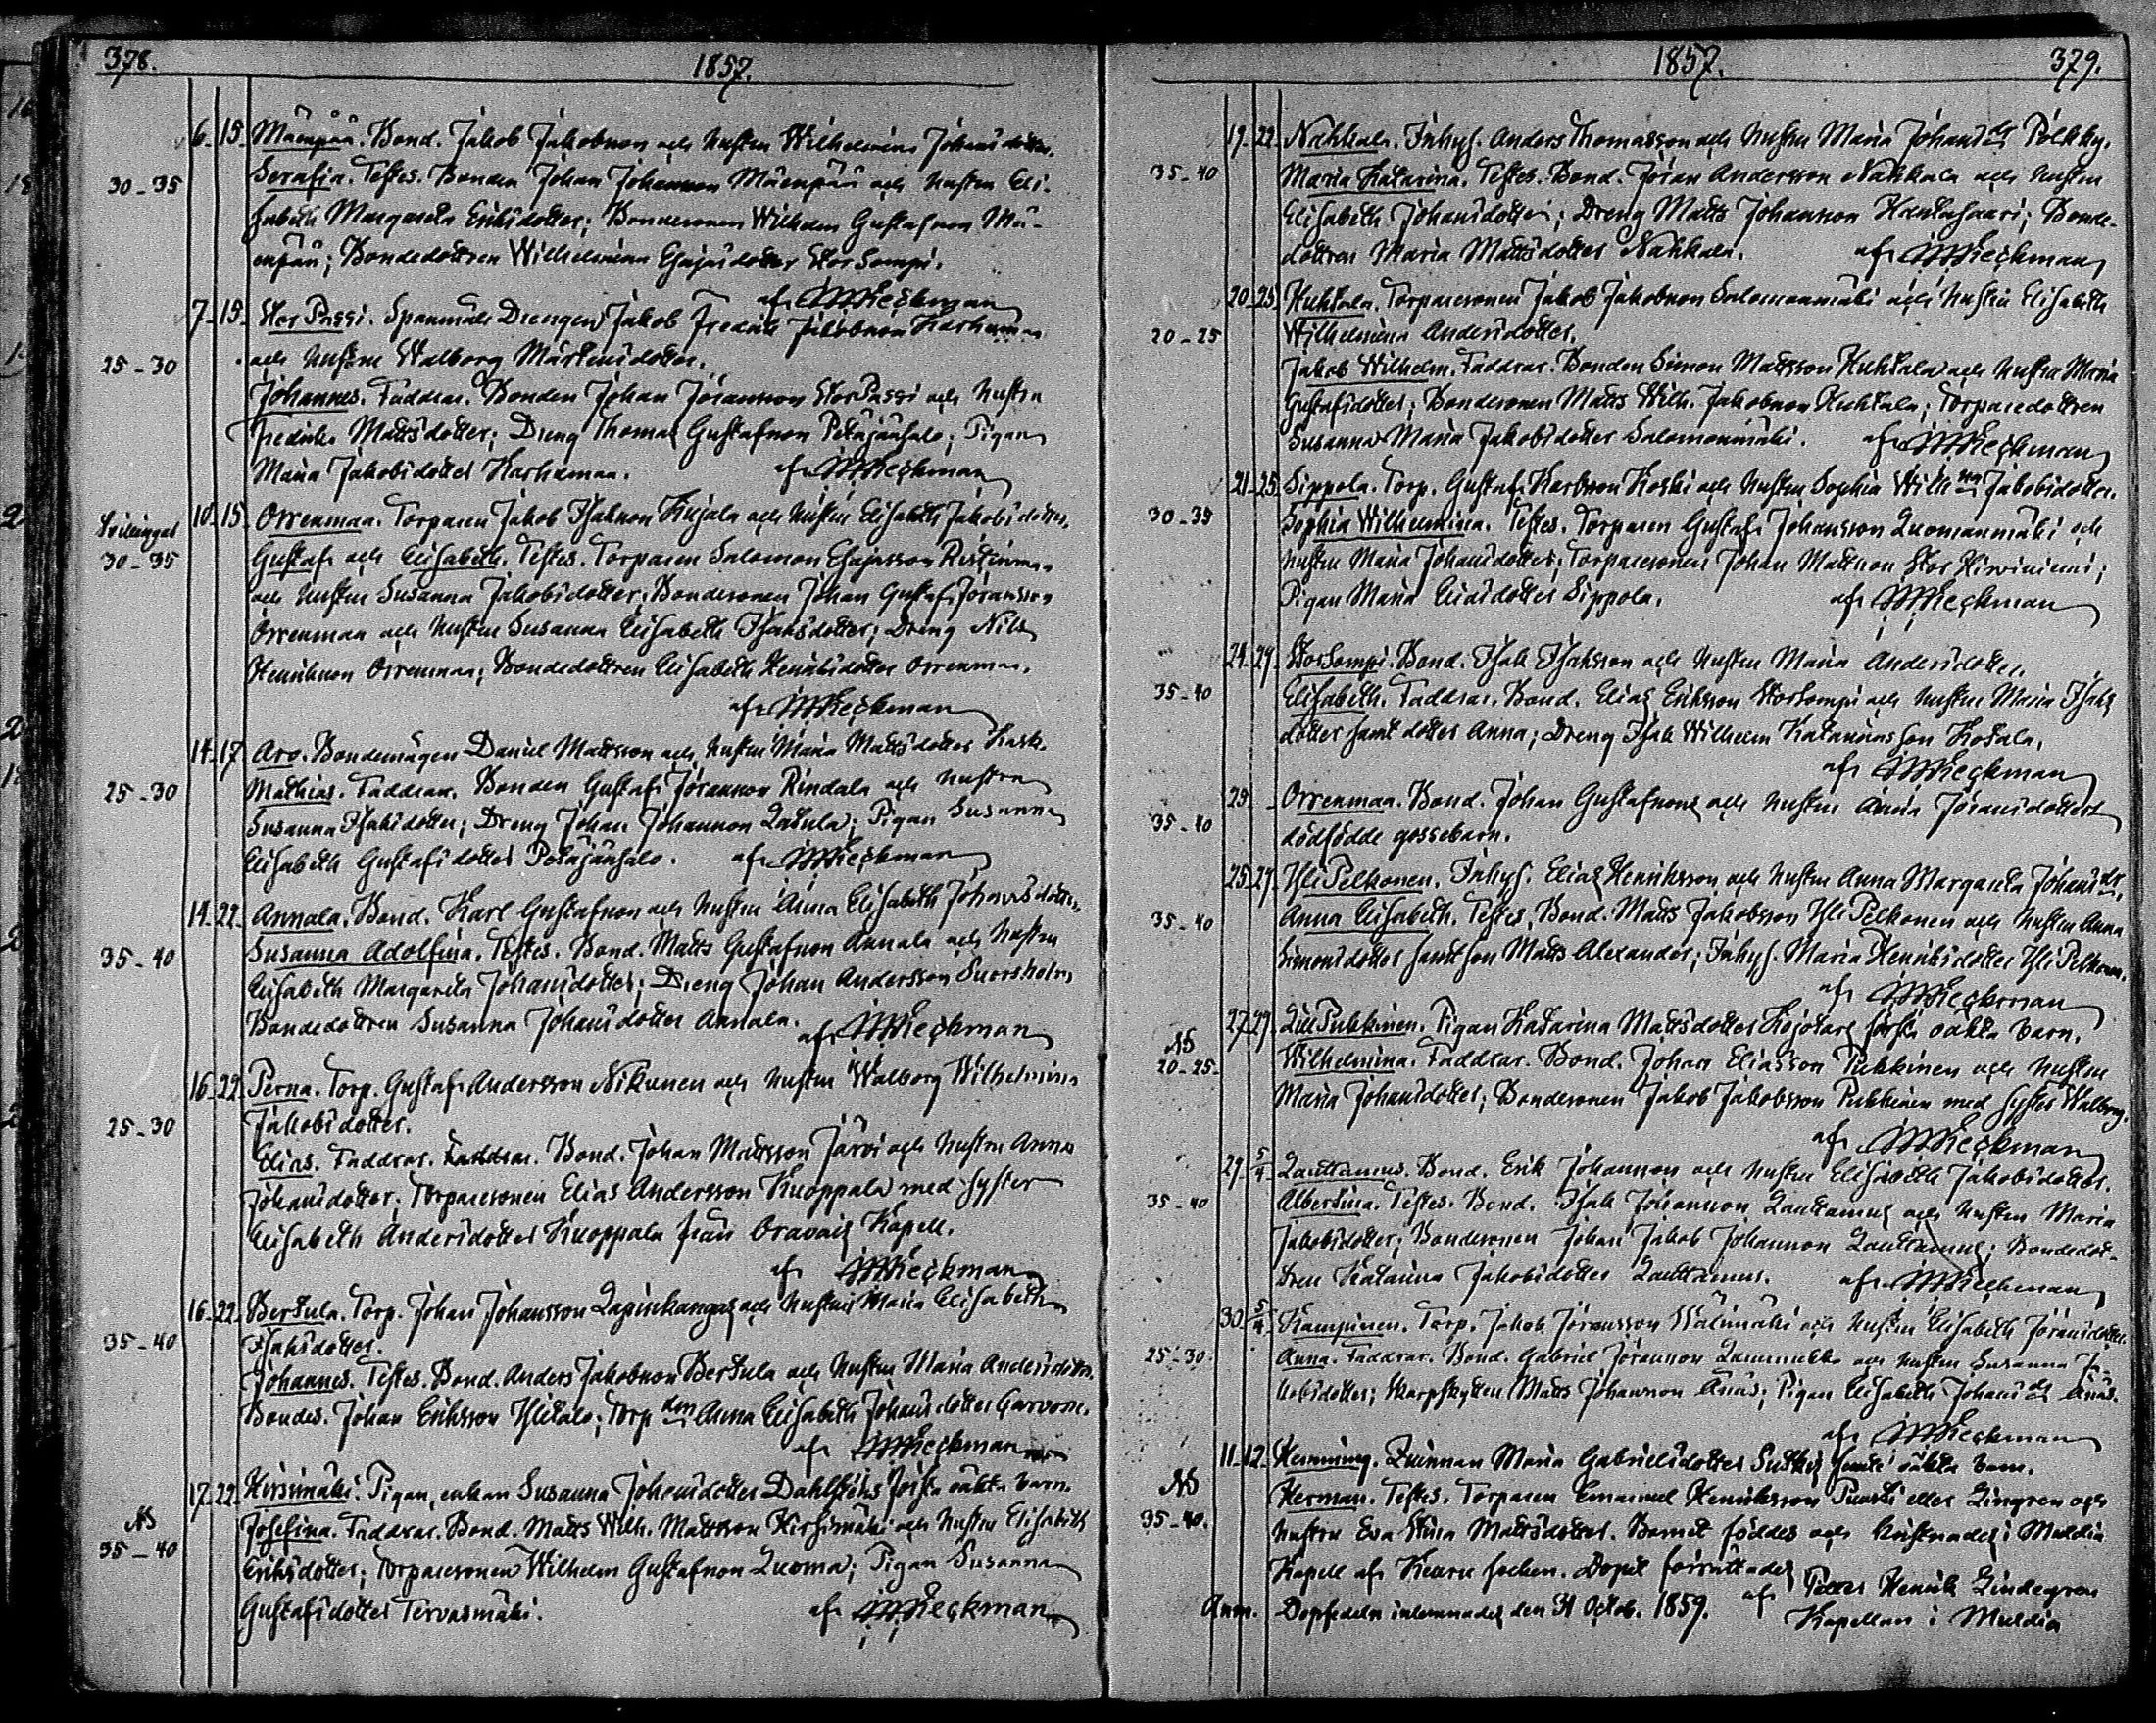 378.
1857.
6. 15. Mäenpää. Bond. Jakob Jakobsson och hustru Wilhelmina Johansdotter.
30-35 Serafia. Testes. Bonden Johan Johansson Mäenpää och hustru Eli-
sabeth Margareta Eriksdotter; Bondesonen Wilhelm Gustafsson Mä-
enpää; Bondedottren Wilhelmina Esajasdotter StorSompi.
af MReckman
7. 15. Stor Passi. Spanmåls Drengen Jakob Fredrik Jakobsson Karhumaa
25-30 och hustru Walborg Mårtensdotter.
Johannes. Faddrar. Bonden Johan Jöransson StorPassi och hustru
Fredrika Mattsdotter; Dreng Thomas Gustafsson Petäjäsalo; Pigan
Maria Jakobsdotter Karhumaa. af MReckman
10. 15. Orrenmaa. Torparen Jakob Isaksson Kujala och hustru Elisabeth Jakobsdotter.
Tvillingar
30-35 Gustaf och Elisabeth. Testes. Torparen Salomon Esajasson Ristinmaa
och hustru Susanna Jakobsdotter; Bondesonen Johan Gustaf Jöransson
Orrenmaa och hustru Susanna Elisabeth Isaksdotter; Dreng Nils
Henriksson Orrenmaa; Bondedottren Elisabeth Henriksdotter Orrenmaa.
af MReckman
14. 17. Aro. Bondemågen Daniel Mattsson och hustru Maria Mattsdotter Kask.
25-30 Mathias. Faddrar. Bonden Gustaf Jöransson Rindala och hustru
Susanna Isaksdotter; Dreng Johan Johansson Latula; Pigan Susanna
Elisabeth Gustafsdotter Petäjäsalo. af MReckman
14. 22. Annala. Bond. Karl Gustafsson och hustru Anna Elisabeth Johansdotter
35-40 Susanna Adolfina. Testes. Bond. Matts Gustafsson Annala och hustru
Elisabeth Margareta Johansdotter; Dreng Johan Andersson
Bondedottren Susanna Johansdotter Annala. af MReckman
16. 22. Perna. Torp. Gustaf Andersson Nikunen och hustru Walborg Wilhelmina
25-30 Jakobsdotter.
Elias. Faddrar. Bond. Johan Mattsson Järvi och hustru Anna
Johansdotter; Torparesonen Elias Andersson Knoppala med syster
Elisabeth Andersdotter Knoppala från Oravais Kapell.
af MReckman
16. 22. Bertula. Torp. Johan Johansson Lapinkangas och hustru Maria Elisabeth
35-40 Isaksdotter.
Johannes. Testes. Bond. Anders Jakobsson Bertula och hustru Maria Andersdotter.
Bondes. Johan Eriksson Ylitalo; Torp den Anna Elisabeth Johansdotter
af MReckman
17. 22. Hirsimäki. Pigan, enkan Susanna Johansdotter Dahlströms första oäkta barn.
NB
35-40 Josefina. Faddrar. Bond. Matts Wilh. Mattsson Hirsimäki och hustru Elisabeth
Eriksdotter; Torparesonen Wilhelm Gustafsson Luoma; Pigan Susanna
Gustafsdotter Tervasmäki. af MReckman
1857.
379.
19. 22. Nahkala. Inhys. Anders Thomasson och hustru Maria Johans dr Pölkky.
35-40 Maria Katarina. Testes. Bond. Jöran Andersson Nahkala och hustru
Elisabeth Johansdotter; Dreng Matts Johansson Kantasaari; Bonde-
dottren Maria Mattsdotter Nahkala. af MReckman
20. 25. Huhtala. Torparesonen Jakob Jakobsson Salomonmäki och hustru Elisabeth
20-25 Wilhelmina Andersdotter.
Jakob Wilhelm. Faddrar. Bonden Simon Mattsson Huhtala och hustru Maria
Gustafsdotter; Bondesonen Matts Wilh. Jakobsson Huhtala; Torparedottren
Susanna Maria Jakobsdotter Salomonmäki. af MReckman
21. 25. Sippola. Torp. Gustaf Karlsson Koski och hustru Sophia Wilh na Jakobsdotter.
30-35 Sophia Wilhelmina. Testes. Torparen Gustaf Johansson Luomanmäki och
hustru Maria Johansdotter; Torparesonen Johan Mattsson Stor Hirviniemi;
Pigan Maria Eliasdotter Sippola. af MReckman
24. 29. StorSompi. Bond. Isak Isaksson och hustru Maria Andersdotter.
35-40 Elisabeth. Faddrar. Bond. Elias Eriksson StorSompi och hustru Maria Isaks
dotter samt dotter Anna; Dreng Isak Wilhelm Katarinasson Kotala.
af MReckman
25. - Orrenmaa. Bond. Johan Gustafssons och hustru Anna Jöransdotters
35-40 dödfödde gossebarn.
25. 29. YliPelkonen. Inhys. Elias Henriksson och hustru Anna Margareta Johans dr.
35-40 Anna Elisabeth. Testes. Bond. Matts Jakobsson YliPelkonen och hustru Anna
Simonsdotter samt son Matts Alexander; Inhys. Maria Henriksdotter YliPelkonen.
af MReckman
27. 29. LillPukkinen. Pigan Katarina Mattsdotter Kojolas första oäkta barn.
NB
20-25 Wilhelmina. Faddrar. Bond. Johan Eliasson Pukkinen och hustru
Maria Johansdotter; Bondesonen Jakob Jakobsson Pukkinen med syster Walborg.
af MReckman
29. 5/4 Lauttamus. Bond. Erik Johansson och hustru Elisabeth Jakobsdotter.
35-40 Albertina. Testes. Bond. Isak Johansson Lauttamus och hustru Maria
Jakobsdotter; Bondesonen Johan Jakob Johansson Lauttamus; Bondedot-
tren Katarina Jakobsdotter Lauttamus. af MReckman
30. 5/4 Kampinen. Torp. Jakob Jöransson Wälimäki och hustru Elisabeth Jöransdotter.
25-30 Anna. Faddrar. Bond. Gabriel Jöransson och hustru Susanna Ja-
kobsdotter; Skarpskytten Matts Johansson Änäs; Pigan Elisabeth Johans dr Änäs.
af MReckman
11. 12. Hemming. Qvinnan Maria Gabrielsdotter oäkta barn.
NB
35-40. Herman. Testes. Torparen Emanuel Henriksson eller Lingren och
hustru Eva Stina Mattsdotter. Barnet föddes och kristnades i Muldia
Kapell af Keuru socken. Dopet förrättades
af Petter Henrik Lindegren
Kapellan i Muldia
Anm. Dopsedeln inlemnades den 31 Octob. 1859.